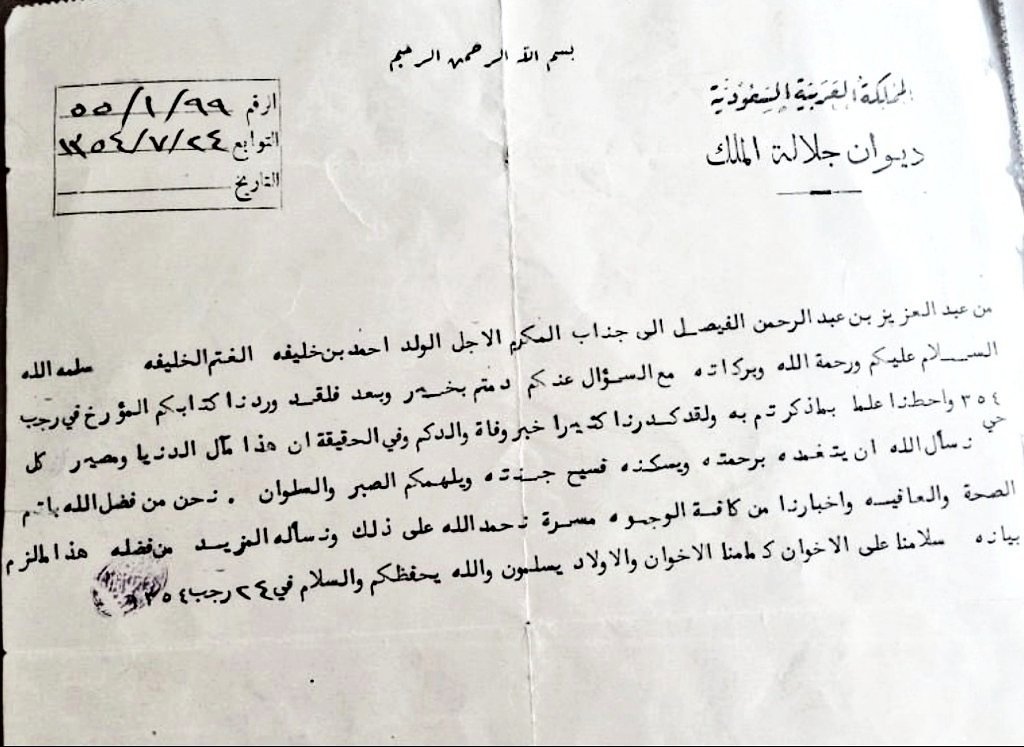 بسم الله الرحمن الرحيم
المملكة العربية السعودية
ديوان جلالة الملك
الرقم ٥٥/١/٩٩
التوابع ١٣٥٤/٧/٢٤
التاريخ
من عبد العزيز بن عبد الرحمن الفيصل الى جناب المكرم الاجل الولد احمد بن خليفه الغتم الخليفه سلمه الله
السلام عليكم ورحمة الله وبركاته مع السؤال عنكم دمتم بخير وبعد فلقد وردنا كتابكم المؤرخ في رجب
٣٥٤ واحطنا علما بماذكرتم به ولقد كدرنا كثيرا خبر وفاة والدكم وفي الحقيقة ان هذا مآل الدنيا ومصير كل
حي نسأل الله ان يتغمده برحمته ويسكنه فسيح جنته ويلهمكم الصبر والسلوان . نحن من فضل الله باتم
الصحة والعافيه واخبارنا من كافة الوجوه مسرة نحمد الله على ذلك ونسأله المزيد من فضله هذا مالزم
بيانه سلامنا على الاخوان كمامنا الاخوان والاولاد يسلمون والله يحفظكم والسلام في ٢٤ رجب ٣٥٤